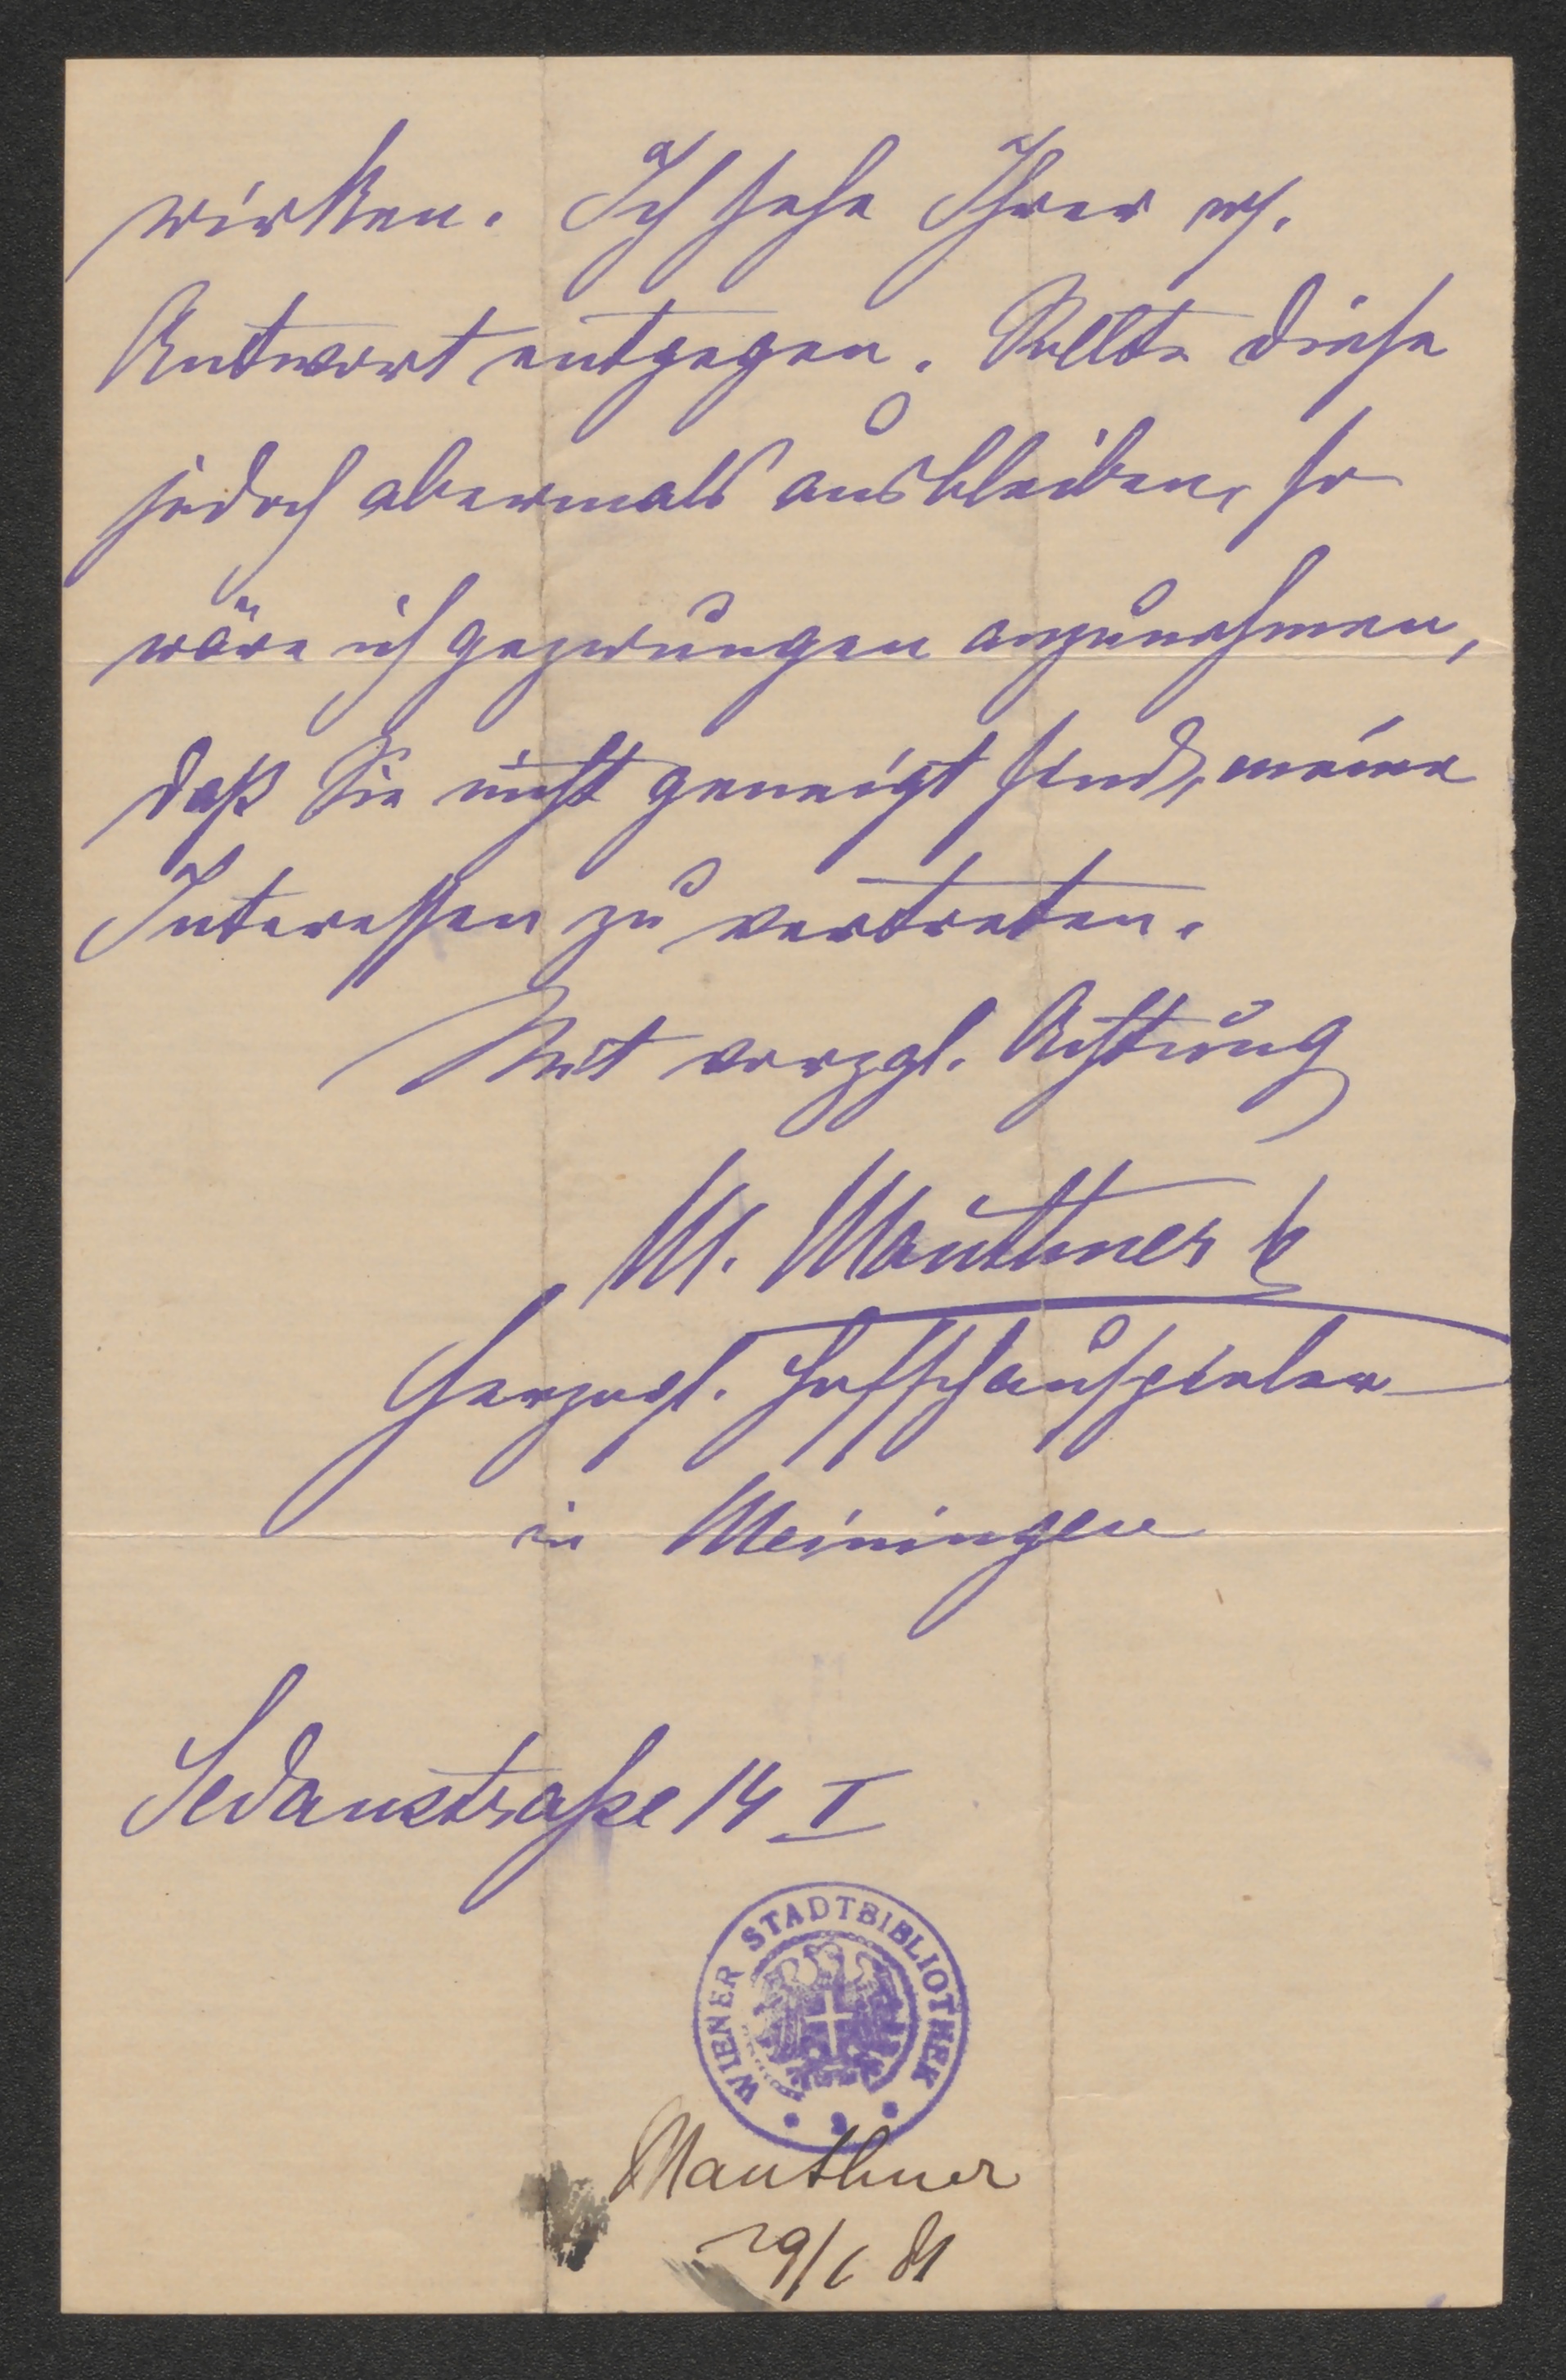 wirken. Ich sehe Ihrer w.
Antwort entgegen. Sollte diese
jedoch abermals ausbleiben, so
wäre ich gezwungen anzunehmen,
daß Sie nicht geneigt sind, meine
Interessen zu vertreten.
Mit vorzgl. Achtung
M. Mauthner
Herzogl. Hofschauspieler
in Meiningen
Sedanstraße 14 I
WIENER STADTBIBLIOTHEK
Mauthner
29/ 81